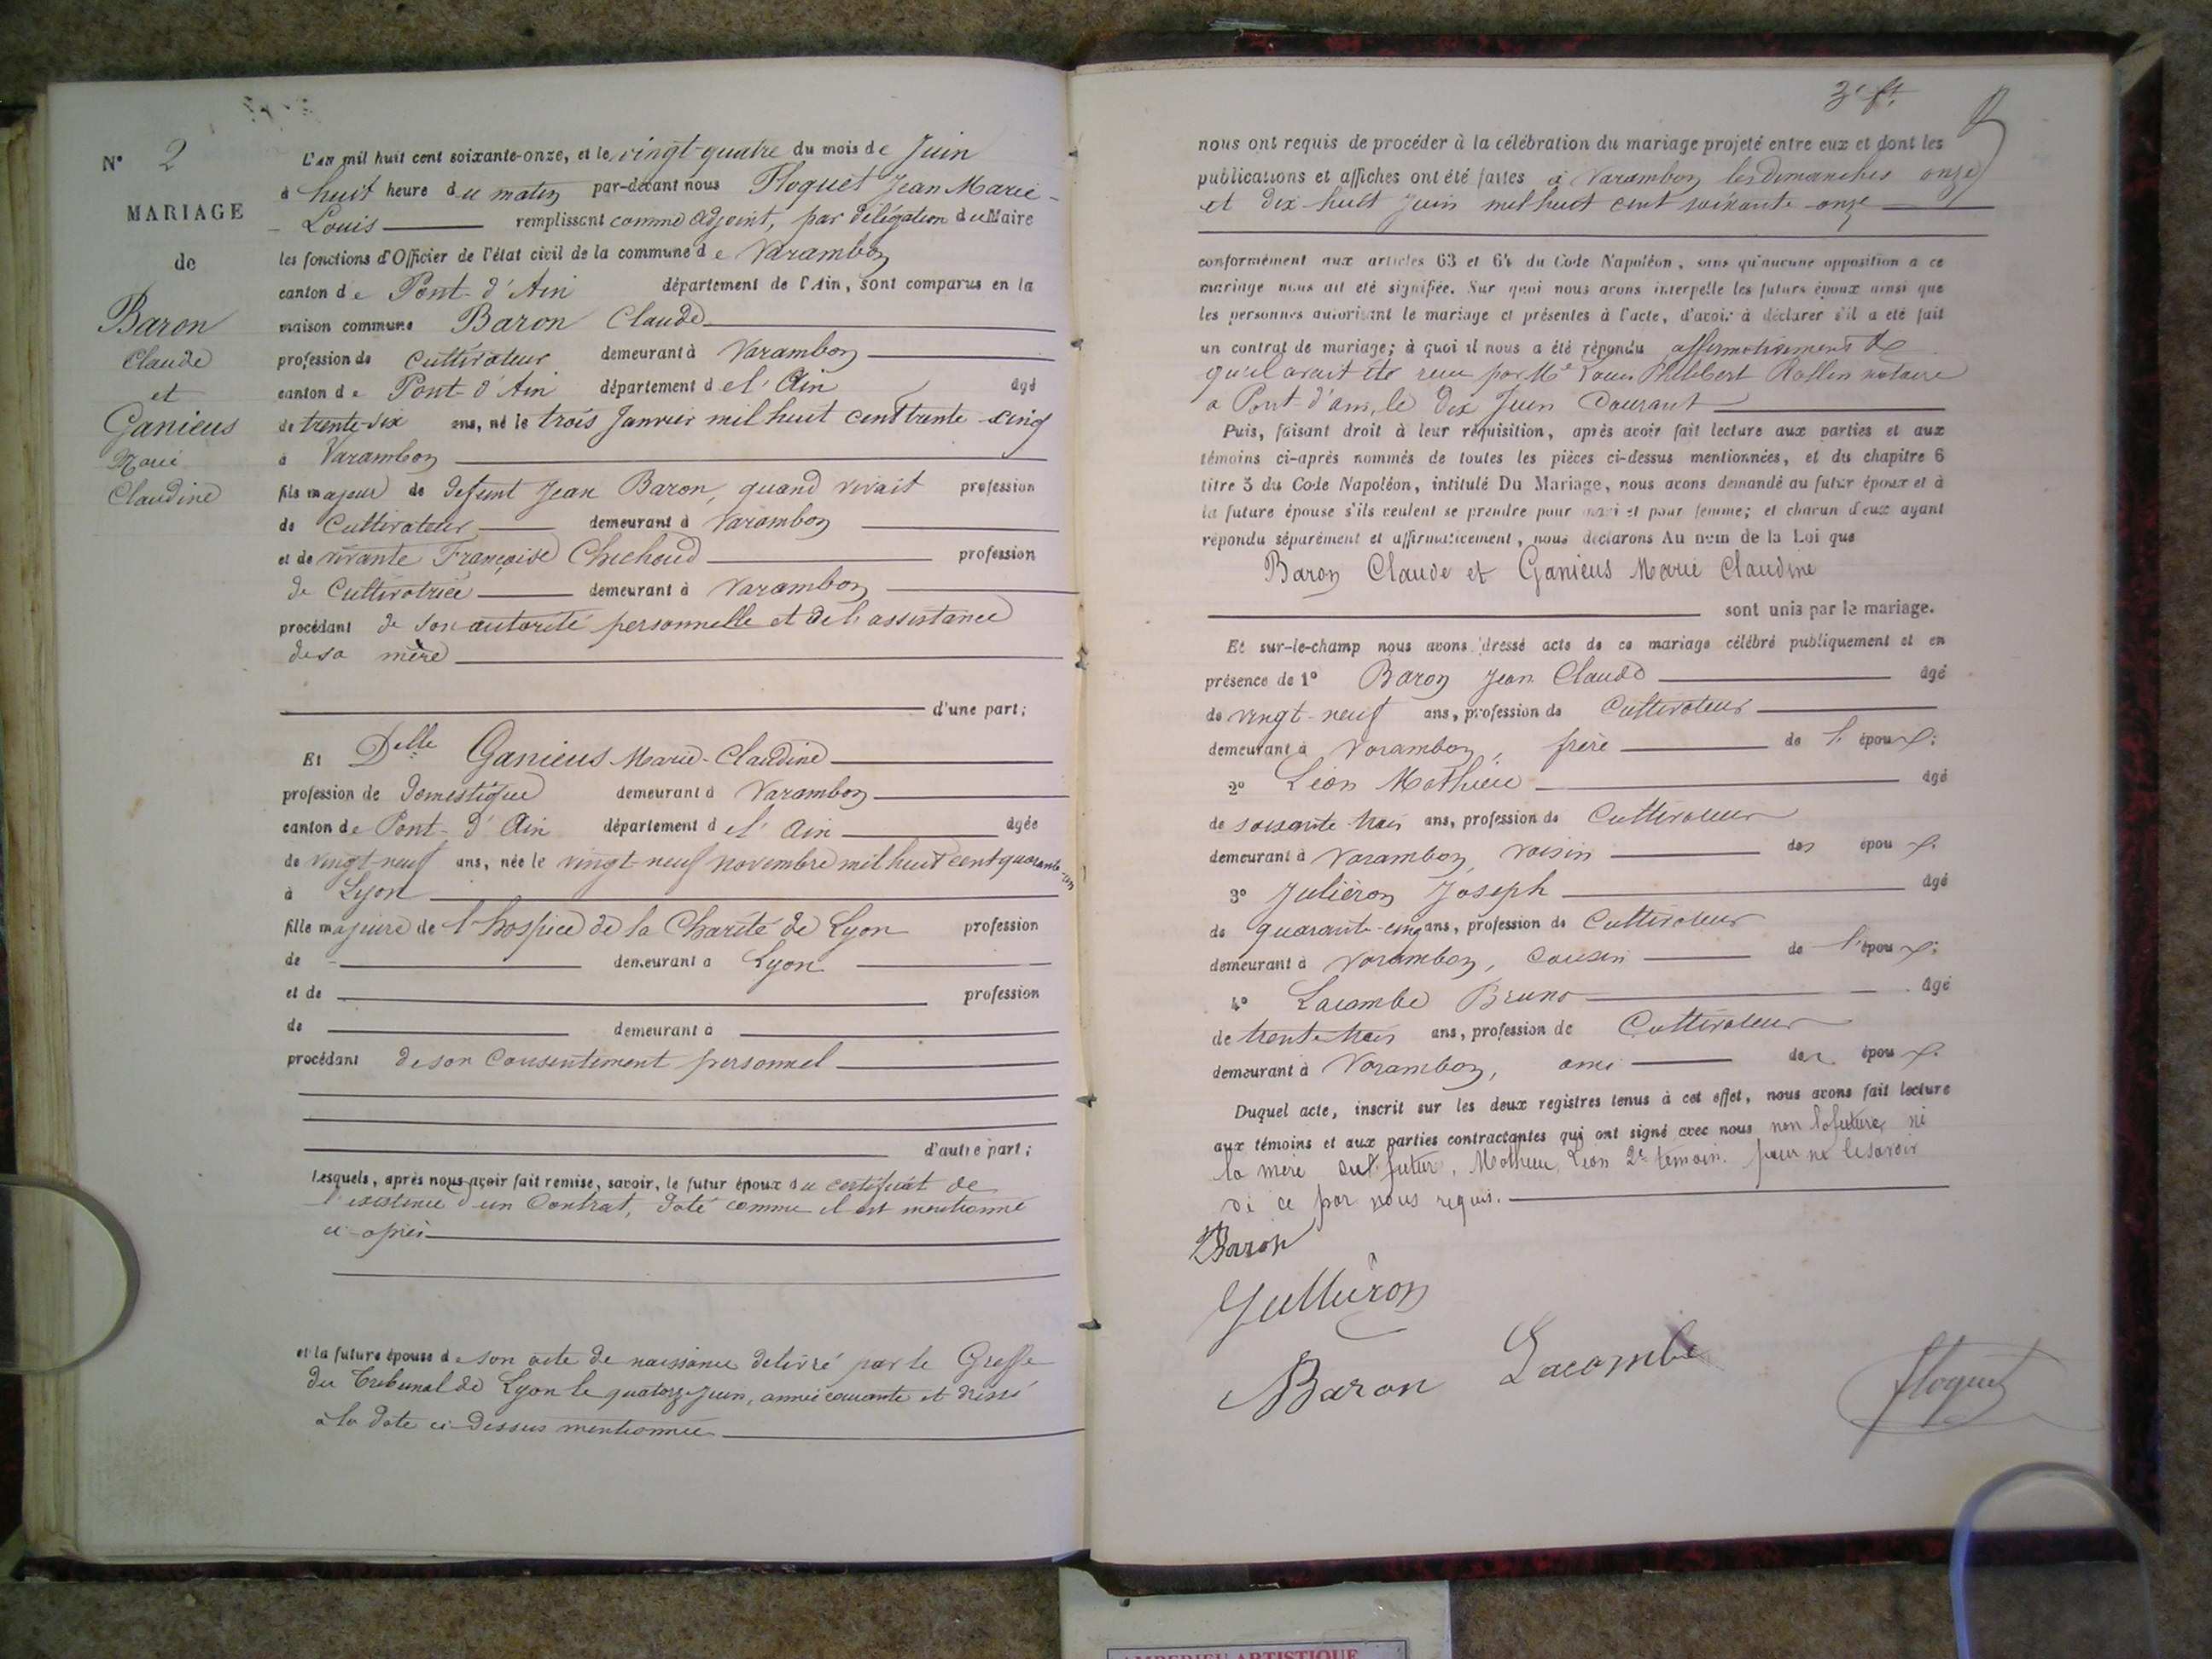 N° 2
MARIAGE
de
Baron
Claude
et
Ganieus
Marie
Claudine
L'an mil huit cent soixante-onze, et le vingt-quatre du mois de Juin
à huit heure du matin par-devant nous Floquet Jean Marie-
- Louis remplissant comme adjoint, par délégation du Maire
les fonctions d'Officier de l'état civil de la commune de Varambon
canton de Pont-d'Ain département de l'Ain, sont comparus en la
maison commune Baron Claude
profession de Cultivateur demeurant à Varambon
canton de Pont-d'Ain département de l'Ain âgé
de trente-six ans, né le trois Janvier mil huit cent trente-cinq
à Varambon
fils majeur de defunt Jean Baron, quand vivait profession
de Cultivateur demeurant à Varambon
et de vivante Françoise Chichoud profession
de Cultivatrice demeurant à Varambon
procédant de son autorité personnelle et de l'assistance
de sa mère
d'une part;
Et Delle Ganieus Marie-Claudine
profession de domestique demeurant à Varambon
canton de Pont-d'Ain département de l'Ain âgée
de vingt-neuf ans, née le vingt-neuf novembre mil huit cent quarante-un
à Lyon
fille majeure de l'hospice de la Charité de Lyon profession
de demeurant à Lyon
et de profession
de demeurant à
procédant de son consentement personnel
d'autre part;
Lesquels, après nous avoir fait remise, savoir, le futur époux du certificat de
l'existence d'un Contrat, daté comme il est mentionné
ci-après
et la future épouse de son acte de naissance délivré par le Greffe
du Tribunal de Lyon le quatorze juin, année courante et dressé
à la date ci-dessus mentionnée
3e ft.
nous ont requis de procéder à la célébration du mariage projeté entre eux et dont les
publications et affiches ont été faites à Varambon les dimanches onze
et dix-huit Juin mil huit cent soixante-onze
conformément aux articles 63 et 64 du Code Napoléon, sans qu'aucune opposition à ce
mariage nous ait été signifiée. Sur quoi nous avons interpellé les futurs époux ainsi que
les personnes autorisant le mariage et présentes à l'acte, d'avoir à déclarer s'il a été fait
un contrat de mariage; à quoi il nous a été répondu affirmativement &
qu'il avait été reçu par Me Louis Philibert Rollin notaire
à Pont-d'ain, le dix Juin Courant
Puis, faisant droit à leur réquisition, après avoir fait lecture aux parties et aux
témoins ci-après nommés de toutes les pièces ci-dessus mentionnées, et du chapitre 6
titre 5 du Code Napoléon, intitulé Du Mariage, nous avons demandé au futur époux et à
la future épouse s'ils veulent se prendre pour mari et pour femme; et chacun d'eux ayant
répondu séparément et affirmativement, nous déclarons Au nom de la Loi que
Baron Claude et Ganieus Marie Claudine
sont unis par le mariage.
Et sur-le-champ nous avons dressé acte de ce mariage célébré publiquement et en
présence de 1° Baron Jean Claude âgé
de vingt-neuf ans, profession de Cultivateur
demeurant à Varambon, frère de l'époux;
2° Léon Mathieu âgé
de soixante-trois ans, profession de Cultivateur
demeurant à Varambon, voisin des époux.
3° Juliéron Joseph âgé
de quarante-cinq ans, profession de Cultivateur
demeurant à Varambon, cousin de l'époux;
4° Lacombe Bruno âgé
de trente-trois ans, profession de Cultivateur
demeurant à Varambon, ami des époux.
Duquel acte, inscrit sur les deux registres tenus à cet effet, nous avons fait lecture
aux témoins et aux parties contractantes qui ont signé avec nous non la future, ni
la mère du futur, Mathieu Léon 2e témoin. pour ne le savoir
de ce par nous requis.
Baron
Julliéron
Baron Lacombe
Floquet
AMBERIEU ARTISTIQUE